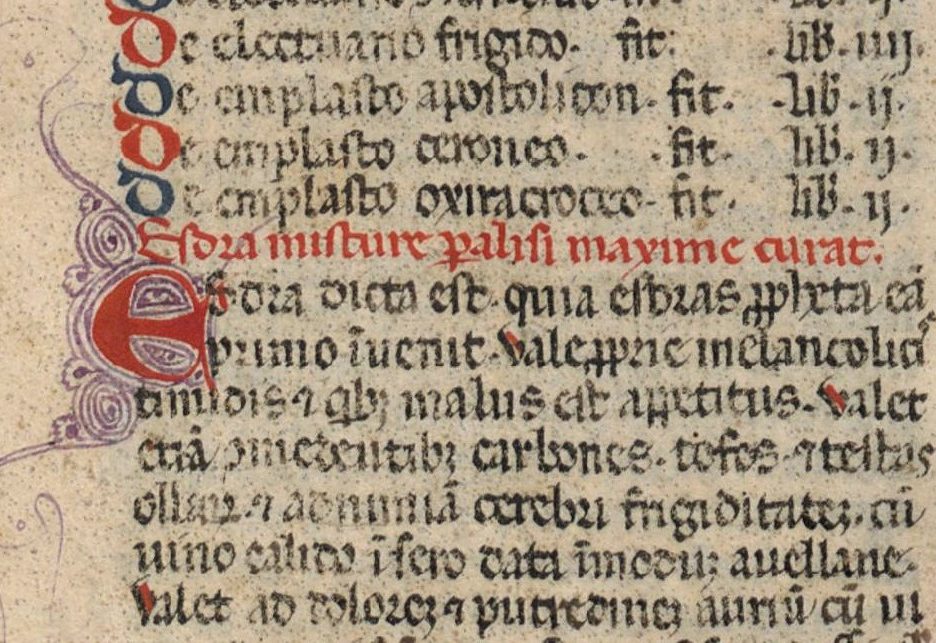 De electuario frigido. fit. lib. iiij.
De emplasto apostolicon. fit. lib. ij.
De emplasto ceroneo. fit. lib. ij.
De emplasto oxiracroceo. fit. lib. ij.
Esdra misture ꝑalisi maxime curat.
Esdra dicta est. quia esdras ꝓpheta eā
primo īuenit. Vale ꝓprie melancolicis
timidis ⁊ qͥbꝫ malus est appetitus. Valet
etiā comedentibꝫ carbones. tofos. ⁊ testas
ollaꝝ. ⁊ ad nimiā cerebri frigiditateꝫ. cū
uino calido ī sero data ī modūꝫ auellane.
Valet ad doloreꝫ ⁊ putredineꝫ auriū cū ui